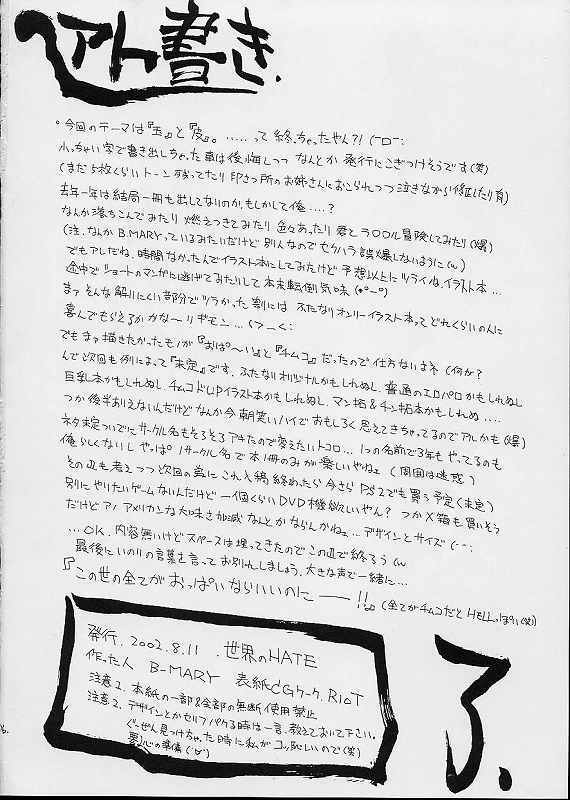 アト書き.
。今回のテーマは『玉』と『皮』。……って終っちゃったやん?!
小っちゃい字で書き出しちゃった事は後悔しつつ なんとか発行にこぎつけそうです(笑)
(まだ5枚くらいトーン残ってたり 印さつ所のお姉さんにおこられつつ泣きながら修正したり有)
去年一年は結局一冊も出してないのか、もしかして俺…?
なんか落ちこんでみたり 燃えつきてみたり 色々あったり 愛とラ○○ル冒険してみたり(爆)
(注.なんかB.MARYっているみたいだけど別人なのでセクハラ誤爆しないように(w)
でもアレだね、時間なかったんでイラスト本にしてみたけど予想以上にツライね、イラスト本…
途中でショートのマンガに逃げてみたりして本末転倒気味
まァそんな解りにくい部分でツラかった割には ふたなりオンリーイラスト本ってどれくらいの人に
喜んでもらえるかかな〜りギモン…
でもまァ描きたかったモノが『おぱ〜い』と『チムコ』だったので仕方ないよネ(何が?
んで次回も例によって『未定』です、ふたなりオリジナルかもしれぬし、普通のエロパロかもしれぬし
巨乳本かもしれぬし チムコドUPイラスト本かもしれぬし、マン拓&チン拓本かもしれぬ….
つか後半ありえないんだけどなんか今朝笑いハイでおもしろく思えてきちゃってるのでアレかも(爆)
ネタ未定ついでにサークル名もそろそろアキたので変えたいトコロ…1つの名前で3年もやってるのも
俺らしくないし やっぱ1サークル名で本1冊のみが楽しいやねェ(周囲は迷惑)
その辺も考えつつ次回の為に これ入稿終わったら今さらPS2でも買う予定(未定)
別にやりたいゲームなんだけど 一個くらいDVD機欲しいやん? つかX箱も買いそう
だけどアノ アメリカンな大味さ加減なんとかならんかねェ…デザインとサイズ
…OK、内容無いけどスペースは埋ってきたのでこの辺で終ろう(w
最後にいのりの言葉を言ってお別れしましょう、大きな声で一緒に…
『この世の全てがおっぱいならいいのにーー!!』(全てがチムコだとHELLっぽい(笑))
発行.2002.8.11 .世界のHATE
作った人 B-MARY 表紙CGワーク.RIOT
注意1.本紙の一部&全部の無断使用禁止
注意2.デザインとかセリフパクる時は一言、教えておいて下さい。
ぐーぜん見つけちゃった時に私がコッ恥しいので(笑)
悪心の準備
了.